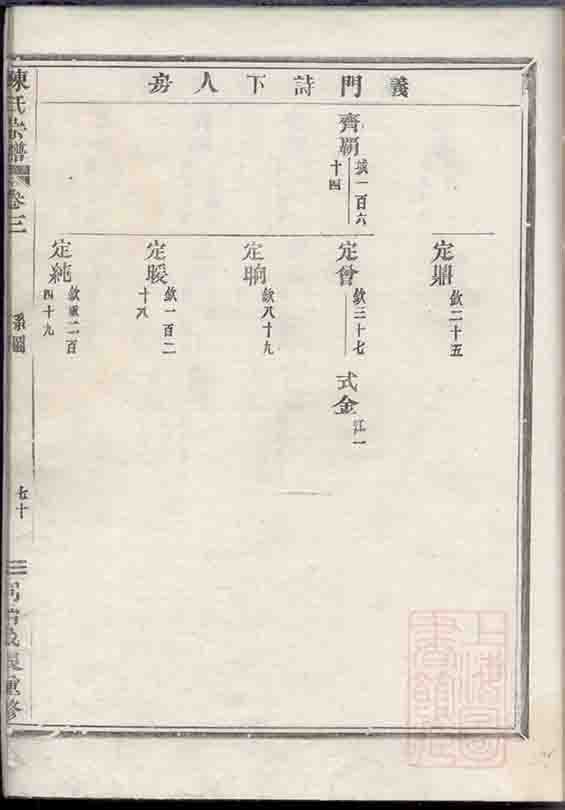 義門詩下人房
齊覇
城一百六
十四
定鼎
欽二十五
定會
欽三十七
式金
江一
定晌
欽八十九
定暖
欽一百二
十八
定純
欽重二百
四十九
陳氏宗譜
卷三
系圖
七十
重修
上海圖
書館藏